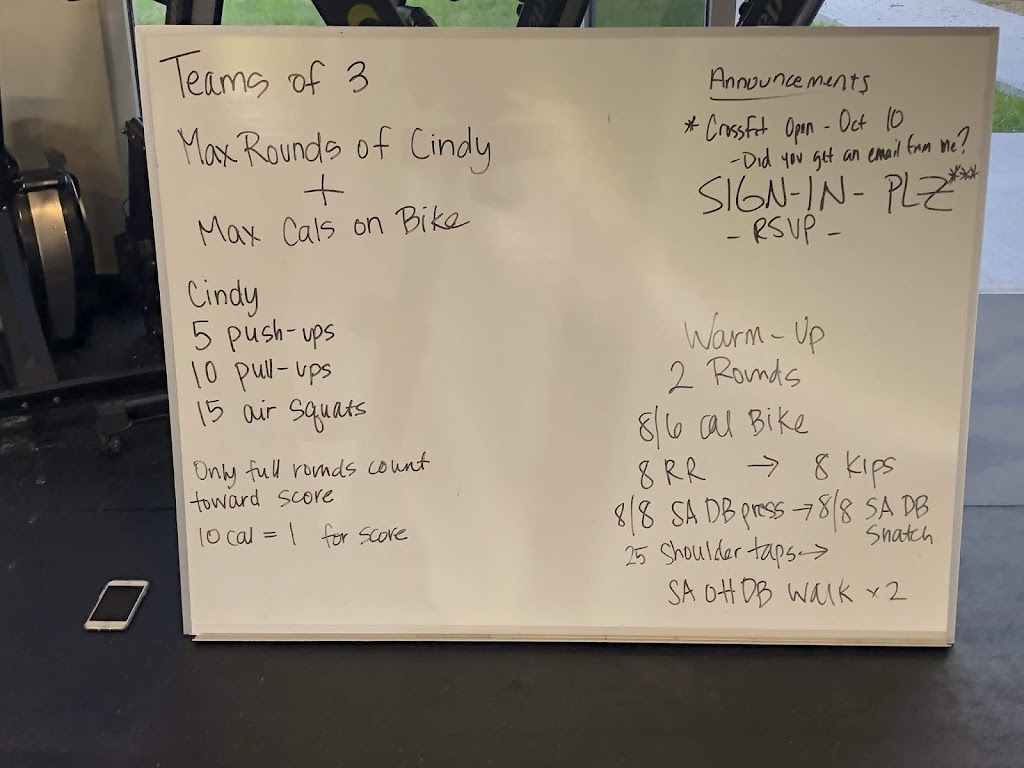 Teams of 3
Max Rounds of Cindy
+
Max Cals on Bike
Cindy
5 push-ups
10 pull-ups
15 air squats
Only full rounds count
toward score
10 cal = 1 for score
Announcements
* Crossfit Open - Oct 10
- Did you get an email from me?
SIGN-IN- PLZ***
- RSVP -
Warm-Up
2 Rounds
8/6 cal Bike
8 RR → 8 Kips
8/8 SA DB press → 8/8 SA DB
Snatch
25 Shoulder taps →
SA OH DB Walk x 2